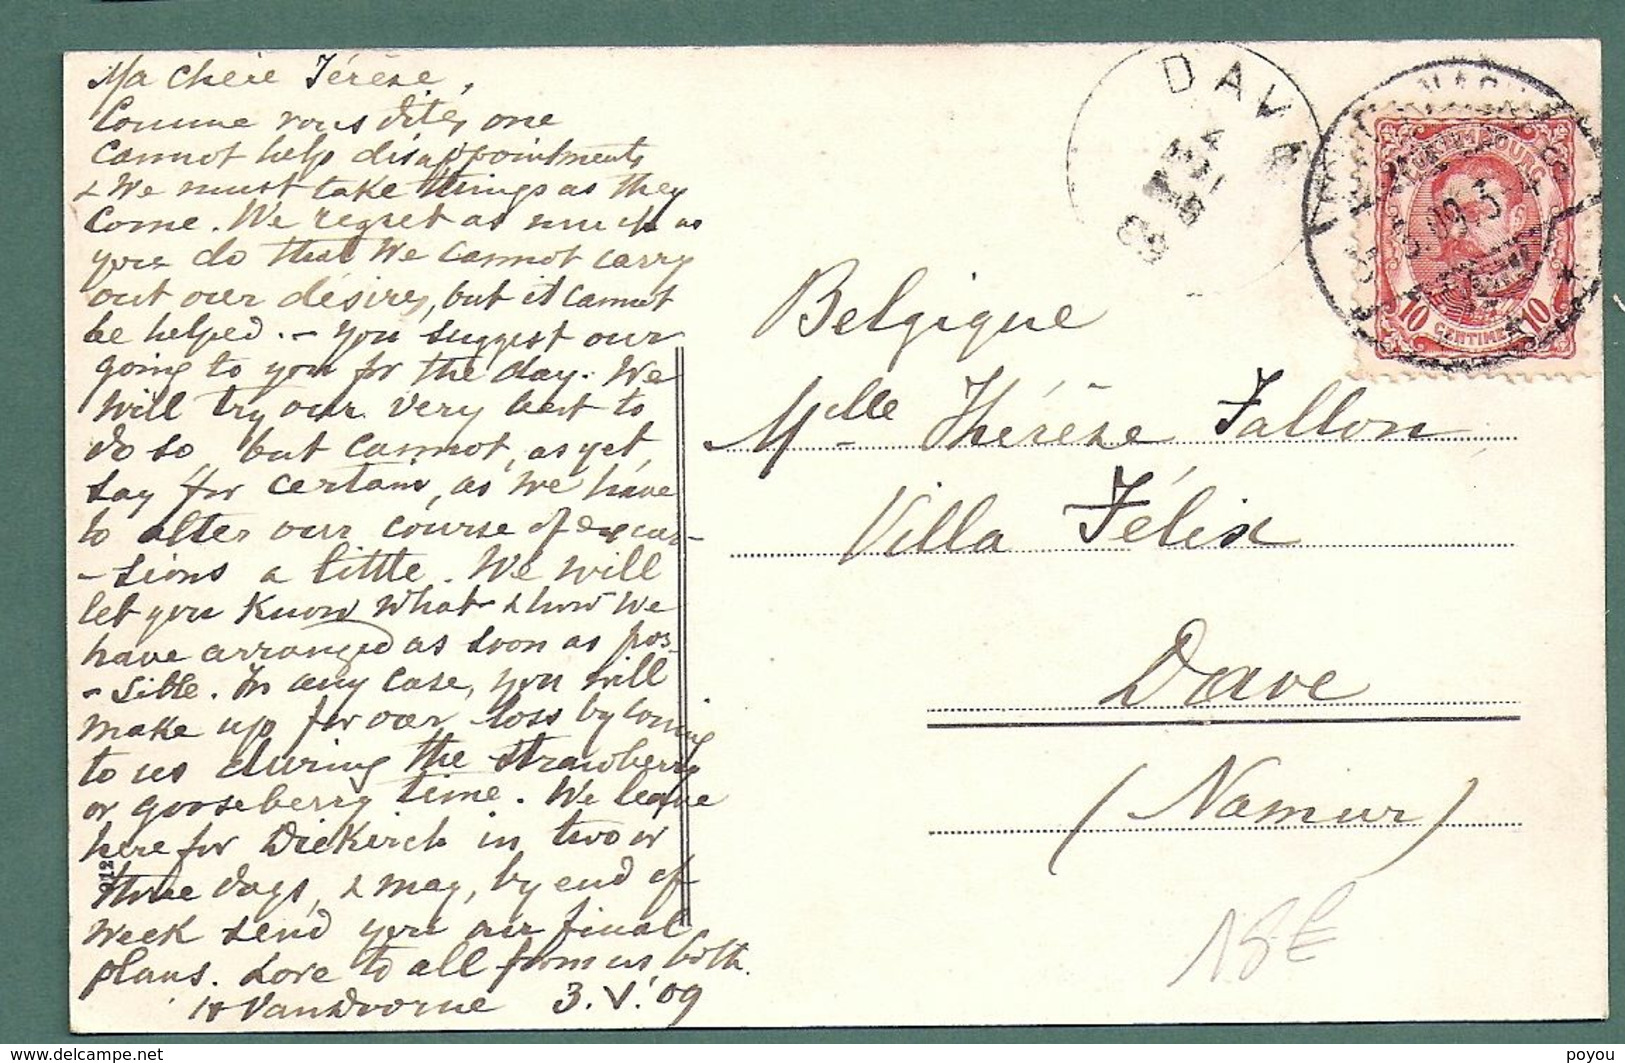 Ma Chère Térèse,
Comme vous dites, one
cannot help disappointments
& We must take things as they
come. We regret as much as
you do that We cannot carry
out our désires, but it cannot
be helped. – You suggest our
going to you for the day. We
Will try our very best to
do so, but cannot, as yet,
say for certain, as We have
to alter our course of excur-
-sions a little. We will
let you know what & how We
have arranged as soon as pos-
-sible. In any case, you will
make up for our loss by coming
to us during the strawberry
or gooseberry time. We leave
here for Diekirch in two or
three days, & may, by end of
week send you our final
plans. Love to all from us both.
VanDoorne 3.V.'09
212
DAVE
LUXEMBOURG
09
10 CENTIMES 10
Belgique
Melle Thérèse Fallon
Villa Félix
Dave
(Namur)
18€
© delcampe.net
poyou